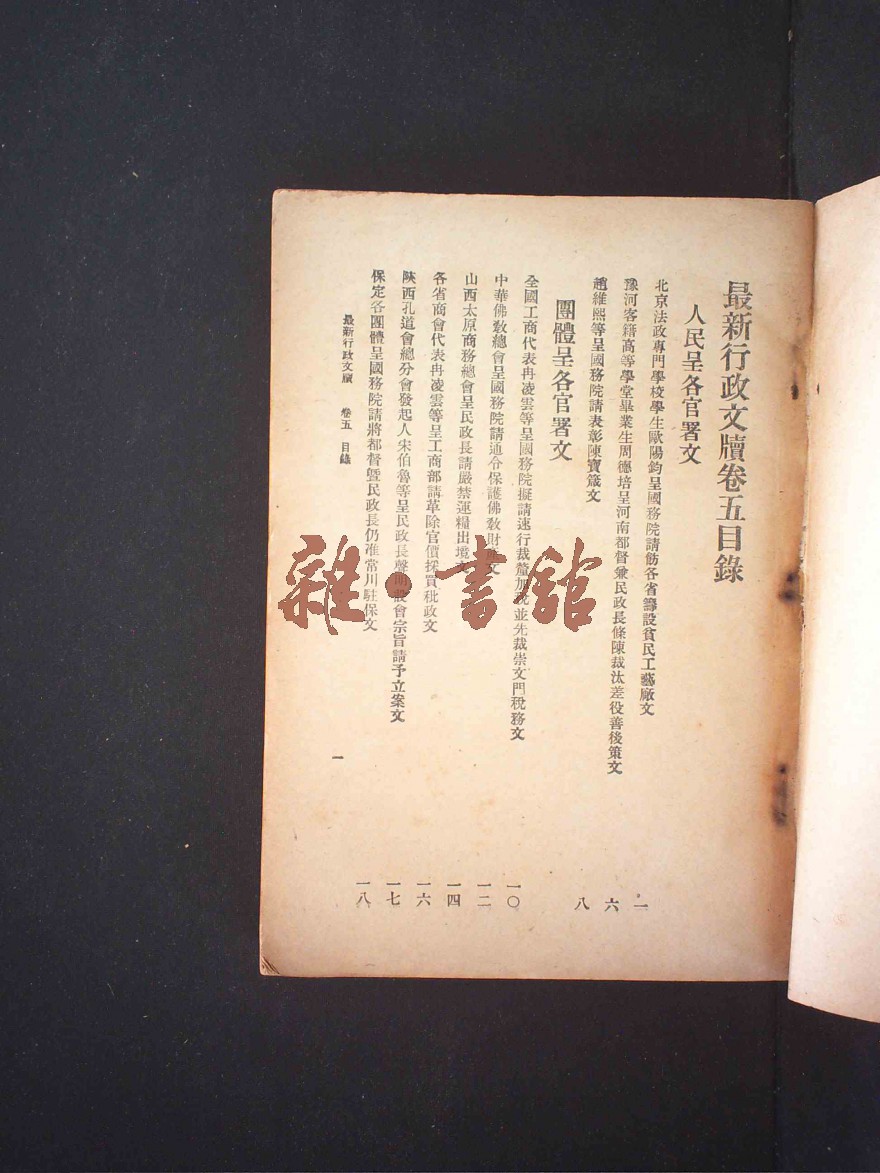 最新行政文牘卷五目錄
人民呈各官署文
北京法政專門學校學生歐陽鈞呈國務院請飭各省籌設貧民工藝廠文 一
豫河客籍高等學堂畢業生周德培呈河南都督兼民政長條陳裁汰差役善後策文 六
趙維熙等呈國務院請表彰陳寶箴文 八
團體呈各官署文
全國工商代表冉凌雲等呈國務院擬請速行裁釐加稅並先裁崇文門稅務文 一〇
中華佛教總會呈國務院請通令保護佛教財產文 一二
山西太原商務總會呈民政長請嚴禁運糧出境文 一四
各省商會代表冉凌雲等呈工商部請革除官價採買秕政文 一六
陝西孔道會總分會發起人宋伯魯等呈民政長聲明設會宗旨請予立案文 一七
保定各團體呈國務院請將都督暨民政長仍准常川駐保文 一八
最新行政文牘 卷五 目錄 一
雜·書館